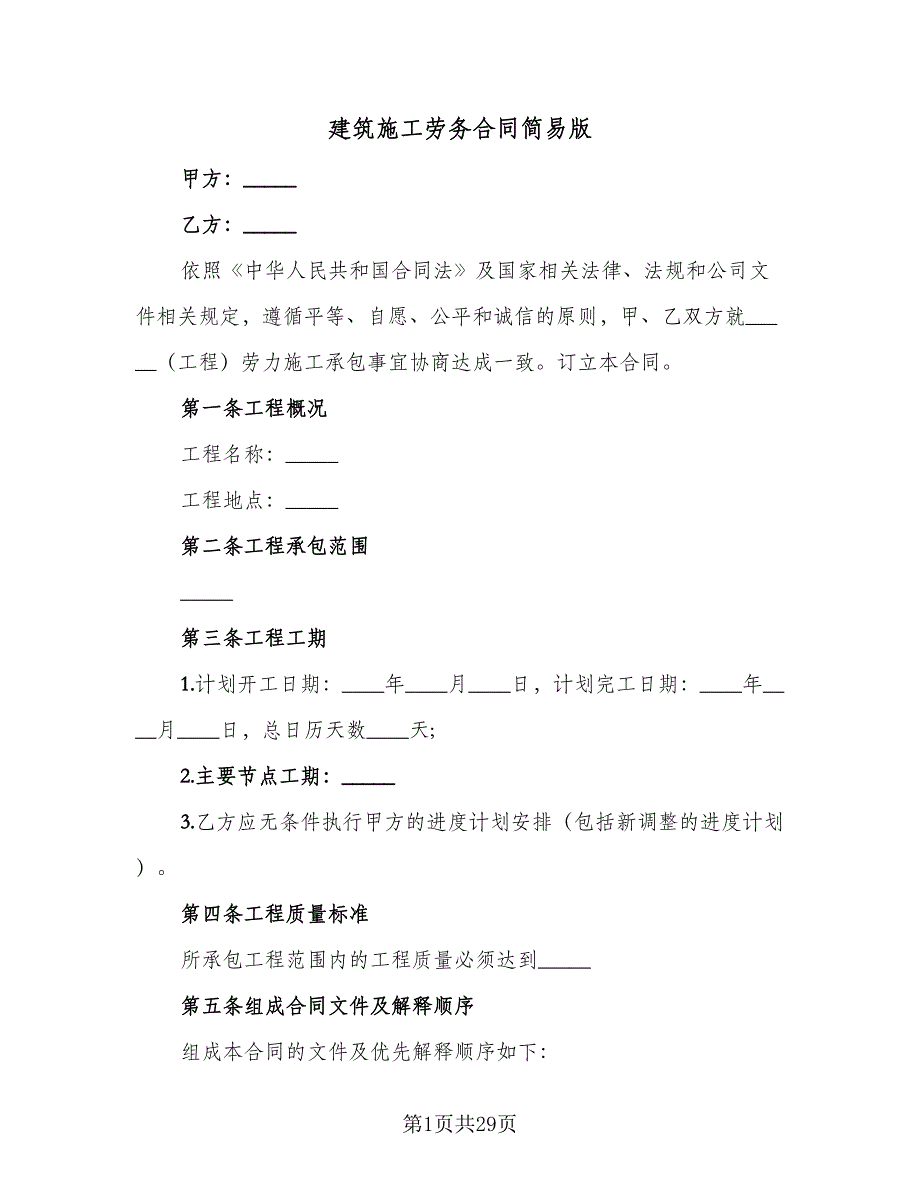 建筑施工劳务合同简易版
甲方：_____
乙方：_____
依照《中华人民共和国合同法》及国家相关法律、法规和公司文
件相关规定，遵循平等、自愿、公平和诚信的原则，甲、乙双方就___
__（工程）劳力施工承包事宜协商达成一致。订立本合同。
第一条工程概况
工程名称：_____
工程地点：_____
第二条工程承包范围
_____
第三条工程工期
1.计划开工日期：____年____月____日，计划完工日期：____年__
__月____日，总日历天数____天;
2.主要节点工期：_____
3.乙方应无条件执行甲方的进度计划安排（包括新调整的进度计划
）。
第四条工程质量标准
所承包工程范围内的工程质量必须达到_____
第五条组成合同文件及解释顺序
组成本合同的文件及优先解释顺序如下：
第1页共29页